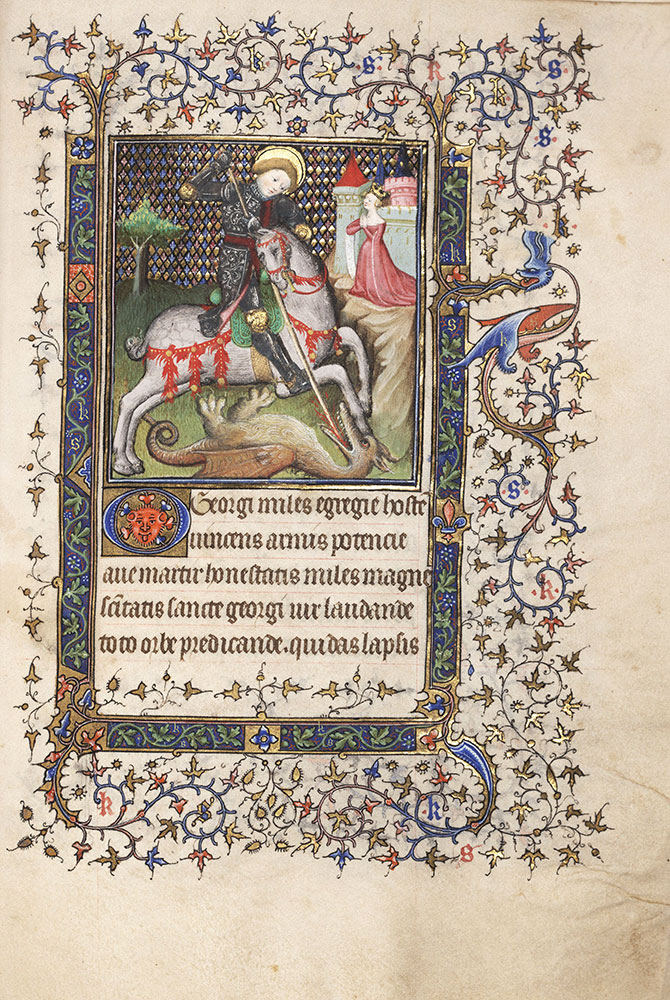 k s k k s
s
k
s
k
s
O Georgi miles egregie hostē
s
uincens arnus potencie
aue martir honestatis miles magne
k
scītatis sancte georgi uir laudande
toto orbe predicande. qui das lapsis
k k
s